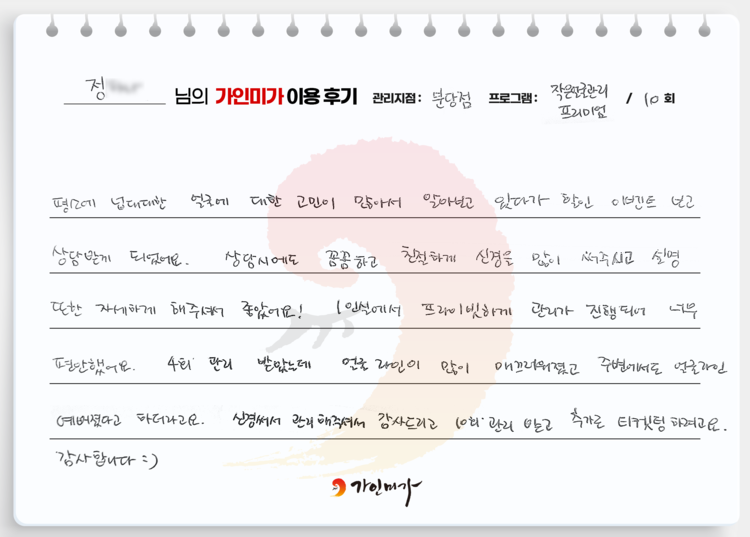 정 님의 가인미가 이용 후기 관리지점 : 분당점 프로그램 : 작은얼굴관리 프리미엄 / 10 회
평소에 넙대대한 얼굴에 대한 고민이 많아서 알아보고 있다가 할인 이벤트 보고
상담받게 되었어요. 상담시에도 꼼꼼하고 친절하게 신경을 많이 써주시고 설명
또한 자세하게 해주셔서 좋았어요! 1인실에서 프라이빗하게 관리가 진행되어 너무
편안했어요. 4회 관리 받았는데 얼굴 라인이 많이 매끄러워졌고 주변에서도 얼굴라인
예뻐졌다고 하더라고요. 신경써서 관리해주셔서 감사드리고 10회 관리 받고 추가로 티켓팅 하려고요.
감사합니다 :)
가인미가